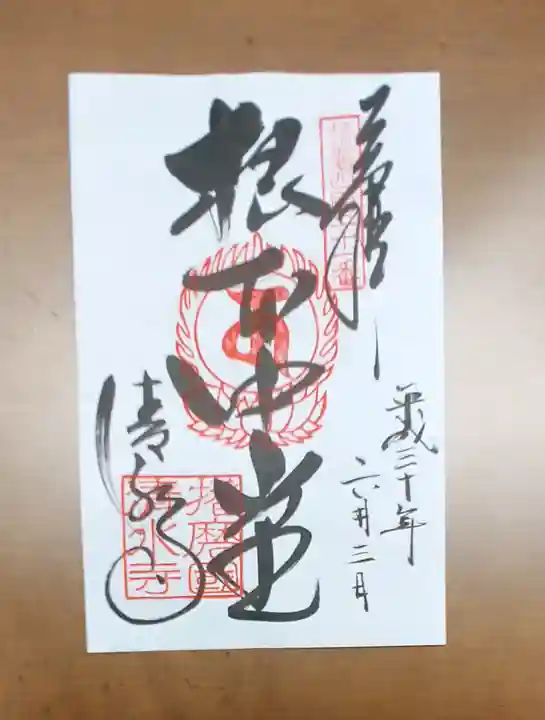 平成三十年
六月三日
根本中堂
清水寺
播磨國
清水寺